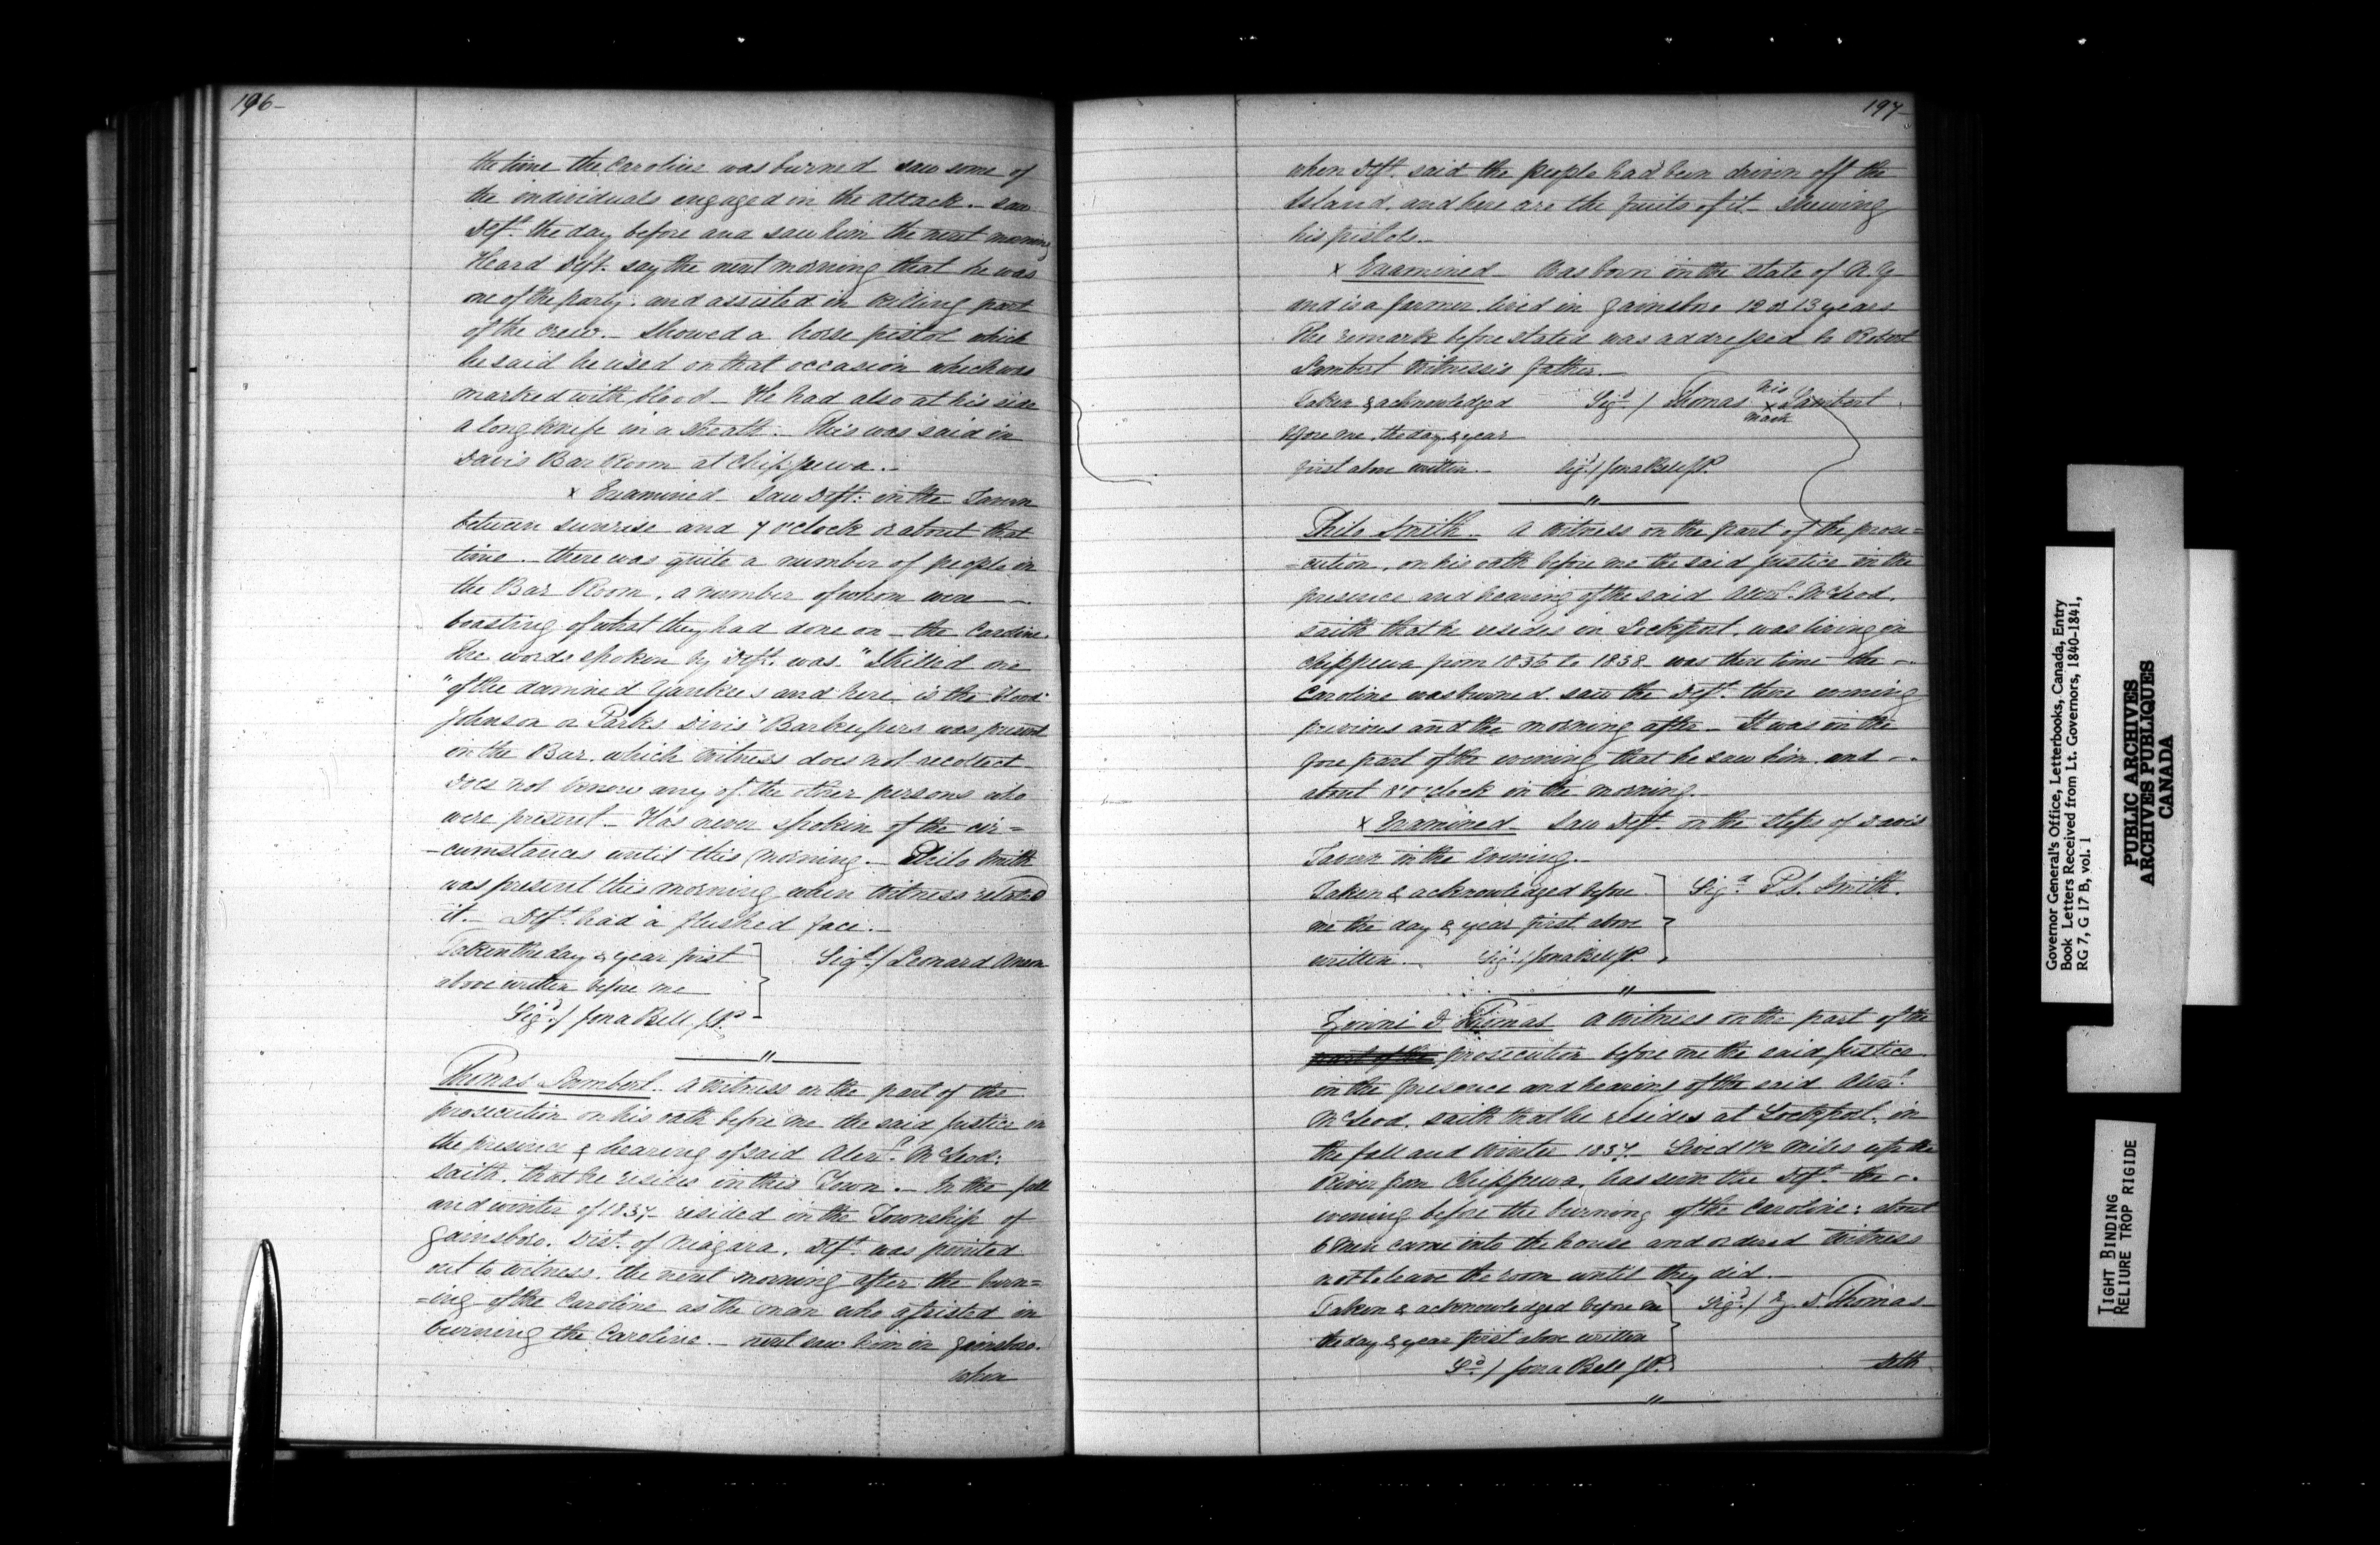 196-
the time the Caroline was burned saw some of
the individuals engaged in the attack. - saw
Deft. the day before and saw him the next morning
Heard Deft. say the next morning that he was
one of the party. and assisted in killing part
of the crew. - Showed a horse pistol which
he said he used on that occasion which was
marked with blood - He had also at his side
a long knife in a sheath. - This was said in
Davis Bar Room at Chippewa. -
x Examined - Saw Deft. in the Tavern
between sunrise and 7 o'clock or about that
time. - there was quite a number of people in
the Bar Room, a number of whom were -
boasting of what they had done on - the Caroline.
The words spoken by Deft. was. "I killed one
"of the damned Yankees and here is the blood"
Johnson or Parks Davis' Barkeepers was present
in the Bar. which Witness does not recollect -
does not know any of the other persons who
were present - Has never spoken of the cir=
-cumstances until this morning. - Philo Smith
was present this morning when Witness related
it. - Deft. had a flushed face. -
Taken the day & year first
above written before me
Sigd./ Leonard Anson
Sigd./ Jona Bell. J.P.
"
Thomas Lambert. a Witness on the part of the
prosecution on his oath before me the said Justice in
the presence & hearing of said Alexr. McLeod:
saith. that he resides in this Town. - In the fall
and winter of 1837 - resided in the Township of
Gainsboro. Dist. of Niagara. Deft. was pointed
out to Witness. the next morning after the burn=
=ing of the Caroline as the man who assisted in
burning the Caroline. - next saw him in Gainsboro.
when
197-
when Deft. said the people had been driven off the
Island, and here are the fruits of it - shewing
his pistols. -
x Examined - Was born in the State of N.Y
and is a farmer. lived in Gainsboro 12 or 13 years
The remark before stated was addressed to Robert
Lambert Witness's father. -
Taken & acknowledged
before me, the day & year
first above written. -
Sigd./ Thomas his x mark Lambert
Sigd./ Jona Bell J.P.
"
Philo Smith. - A Witness on the part of the prose=
=cution, on his oath before me the said Justice in the
presence and hearing of the said Alexr. McLeod,
saith that he resides in Lockport, was living in
Chippewa from 1835 to 1838 was there time the -
Caroline was burned. saw the Deft. there evening
previous and the morning after - It was in the
fore part of the evening that he saw him and -
about 8 o'clock in the morning.
x Examined - Saw Deft. on the steps of Davis
Tavern in the Evening. -
Taken & acknowledged before
me the day & year first above
written. -
Sigd. P.S. Smith.
Sigd./ Jona Bell J.P.
"
D Thomas a Witness on the part of the
part of the prosecution before me the said Justice
in the presence and hearing of the said Alexr.
McLeod, saith that he resides at Lockport. in
the fall and Winter 1837 - Lived 1½ Miles up the
River from Chippewa, has seen the Deft. the -
evening before the burning of the Caroline: about
6 Men came into the house and ordered Witness
not to leave the room until they did. -
Taken & acknowledged before me
the day & year first above written
Sigd./ Z D. Thomas -
Sd./ Jona Bell J.P.
Seth
"
Governor General's Office, Letterbooks, Canada, Entry
Book Letters Received from Lt. Governors, 1840-1841,
RG 7, G 17 B, vol. 1
PUBLIC ARCHIVES
ARCHIVES PUBLIQUES
CANADA
TIGHT BINDING
RELIURE TROP RIGIDE